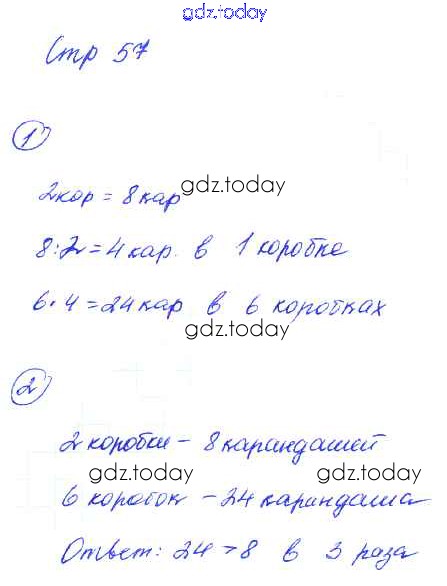 gdz.today
Стр 57
1
2 кор = 8 кар
gdz.today
8:2=4 кар. в 1 коробке
6·4=24 кар в 6 коробках
gdz.today
2
2 коробки - 8 карандашей
gdz.today gdz.today
6 коробок - 24 карандаша
Ответ: 24 > 8 в 3 раза